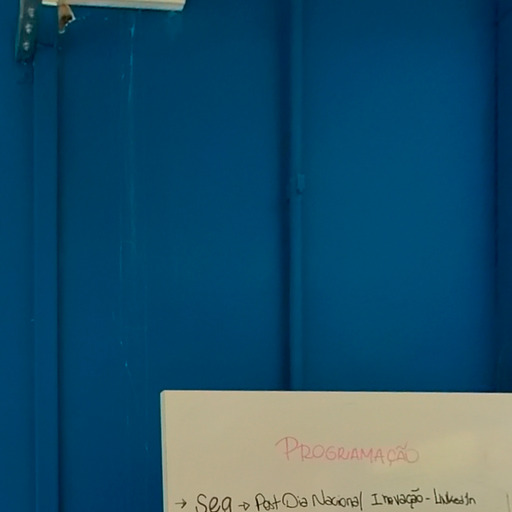 PROGRAMAÇÃO
→ Seg → Post Dia Nacional Inovação - LinkedIn